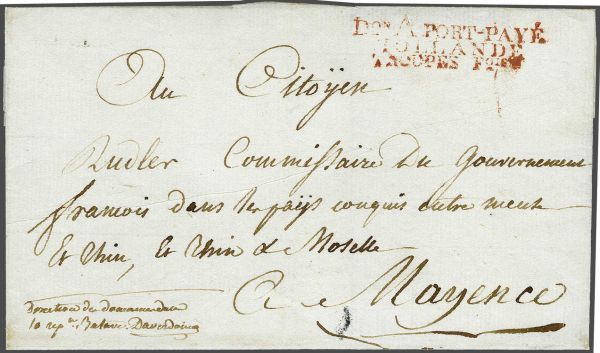 Don A PORT-PAYÉ
HOLLANDE
TROUPES Fses
Au Citoÿen
Rudler Commissaire du Gouvernement
francois dans les païs conquis entre meuse
Et Rhin, Et Rhin & Moselle
A Mayence
Direction des domaines de la
10 rep Batave